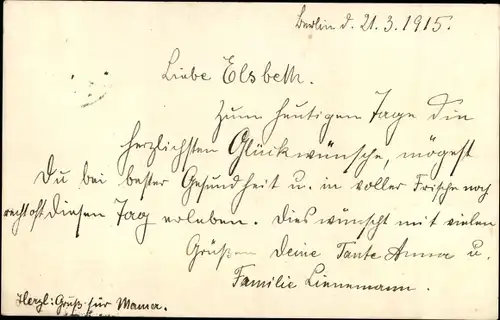 Berlin d. 21.3.1915.
Liebe Elsbeth.
Zum heutigen Tage die
herzlichsten Glückwünsche, mögest
Du bei bester Gesundheit u. in voller Frische noch
recht oft diesen Tag erleben. Dies wünscht mit vielen
Grüßen Deine Tante Anna u.
Familie Lienemann.
Herzl: Gruß für Mama.